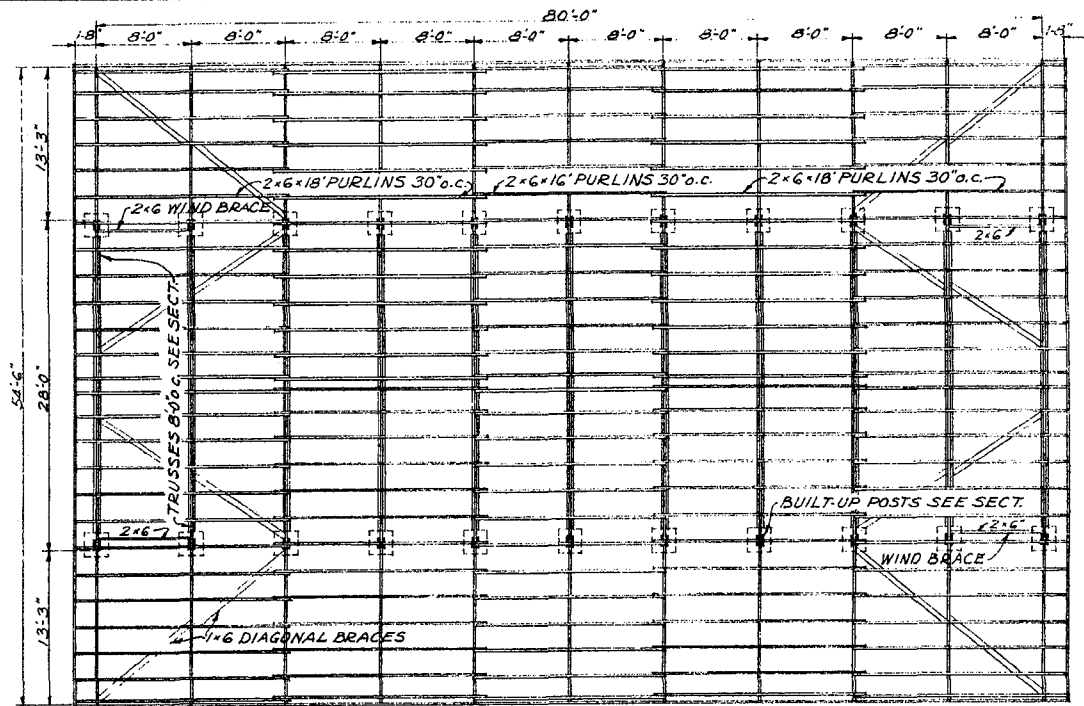 80'-0"
1'-8" 8'-0" 8'-0" 8'-0" 8'-0" 8'-0" 8'-0" 8'-0" 8'-0" 8'-0" 8'-0" 1'-8"
13'-3"
2×6×18' PURLINS 30"o.c. 2×6×16' PURLINS 30"o.c. 2×6×18' PURLINS 30"o.c.
2×6 WIND BRACE
2×6
54'-6"
28'-0"
TRUSSES 8'-0"o.c. SEE SECT.
BUILT-UP POSTS SEE SECT.
2×6
2×6
WIND BRACE
13'-3"
1×6 DIAGONAL BRACES